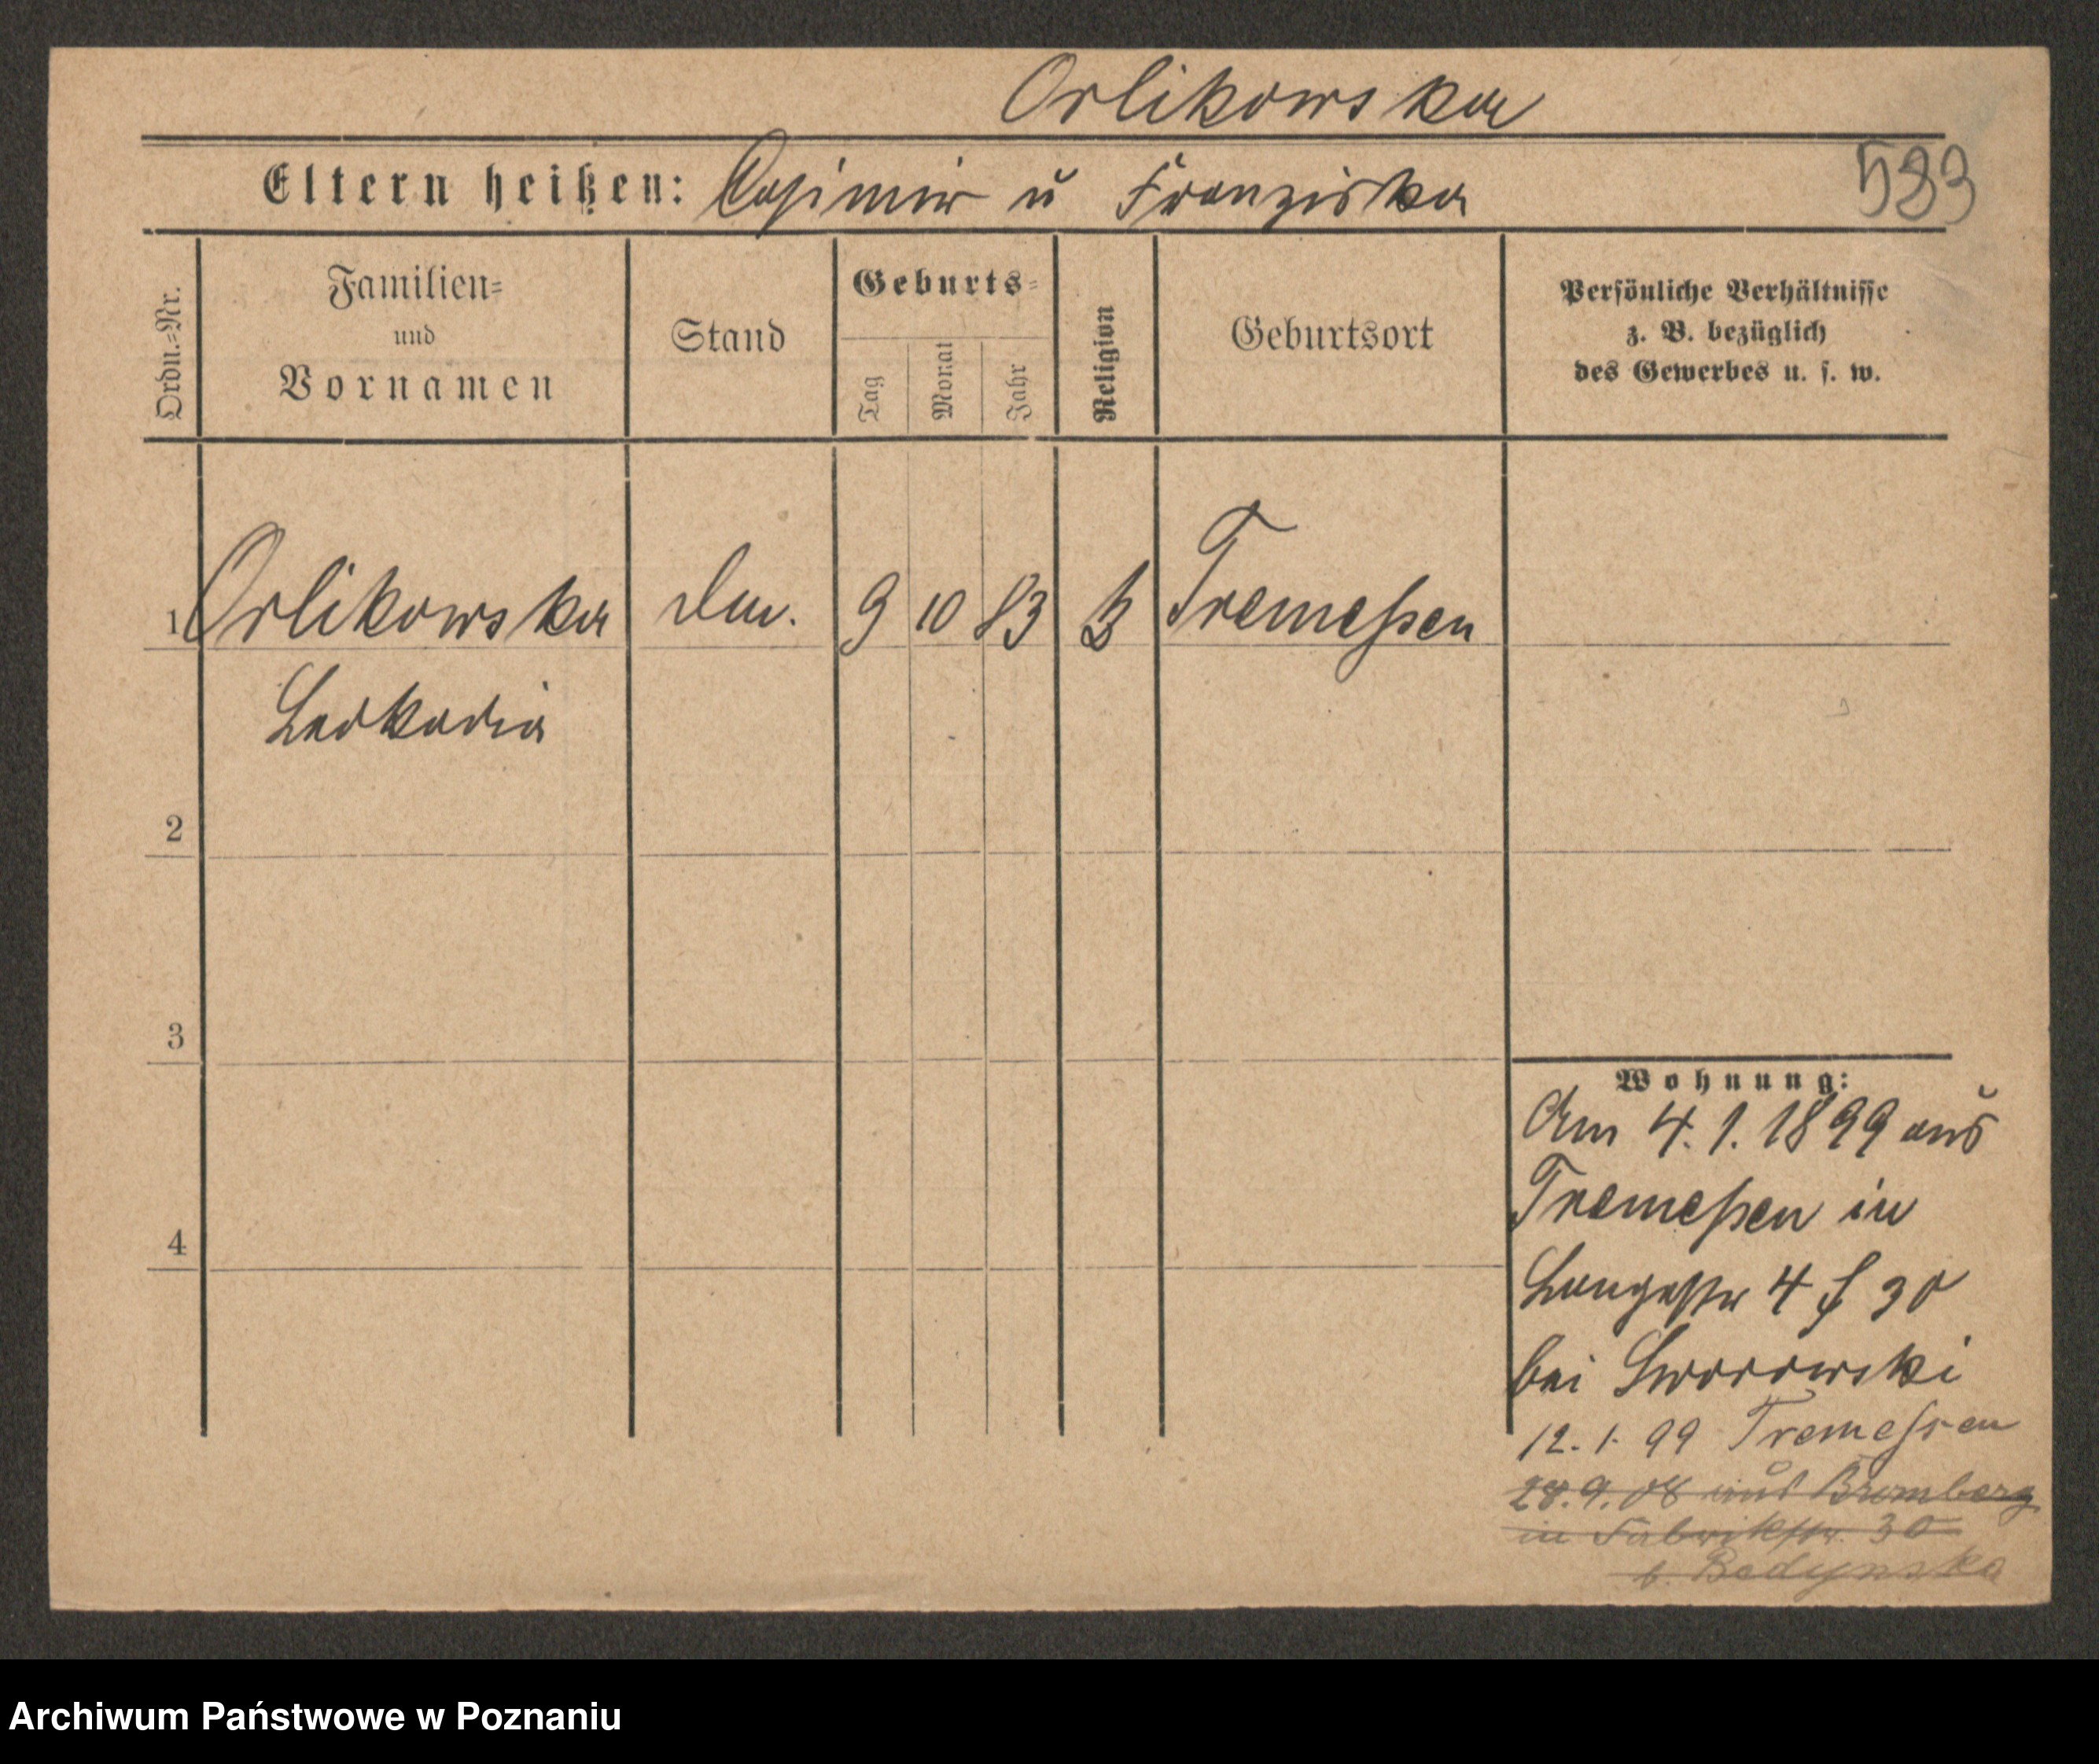 Orlikowska
Eltern heißen: Casimir ŭ Franziska
583
Ordn.-Nr.
Familien-
und
Vornamen
Stand
Geburts-
Tag
Monat
Jahr
Religion
Geburtsort
Persönliche Verhältnisse
z. B. bezüglich
des Gewerbes u. s. w.
1 Orlikowska 9 10 83 Tremeßen
Leokadia
2
3
4
Wohnung:
Am 4. 1. 1899 aŭs
Tremeßen in
Langestr 4 30
bei Sworowski
12. 1. 99 Tremessen
28. 9. 08 aus Bromberg
in Fabrikstr. 30
b. Bodynska
Archiwum Państwowe w Poznaniu